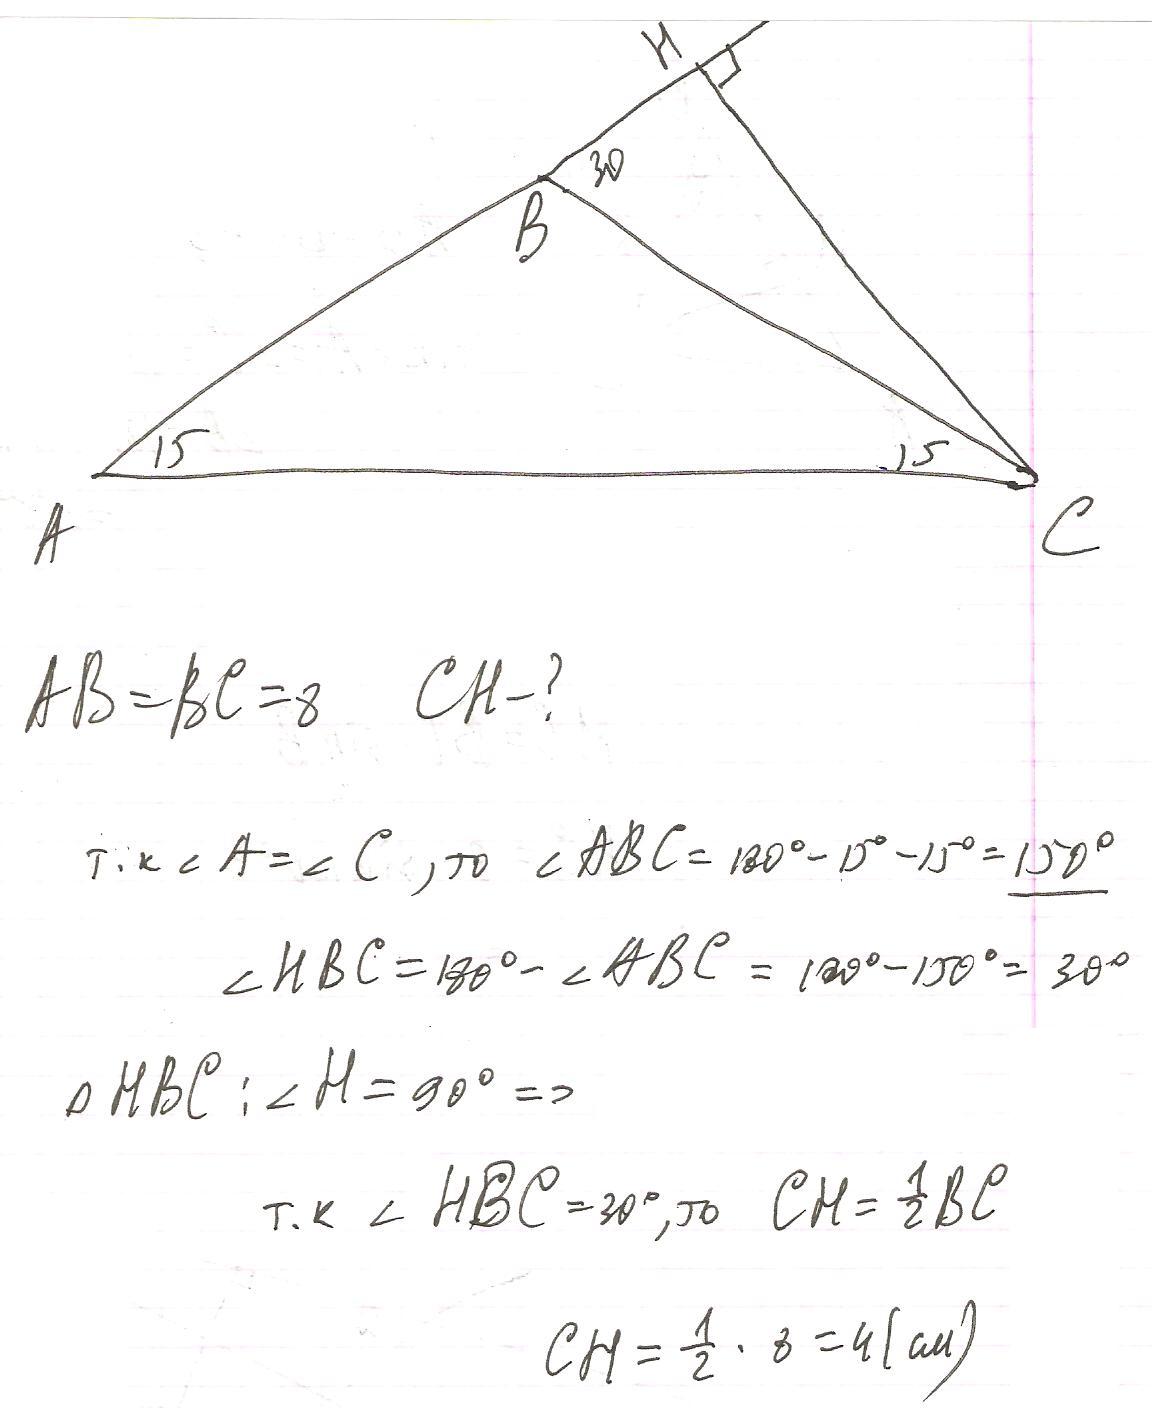 H
30
B
15
15
A
C
AB=BC=8 CH-?
т.к ∠A=∠C, то ∠ABC=180°-15°-15°=150°
∠HBC=180°-∠ABC=180°-150°=30°
△HBC: ∠H=90° =>
т.к ∠HBC=30°, то CH=1/2BC
CH=1/2·8=4(см)